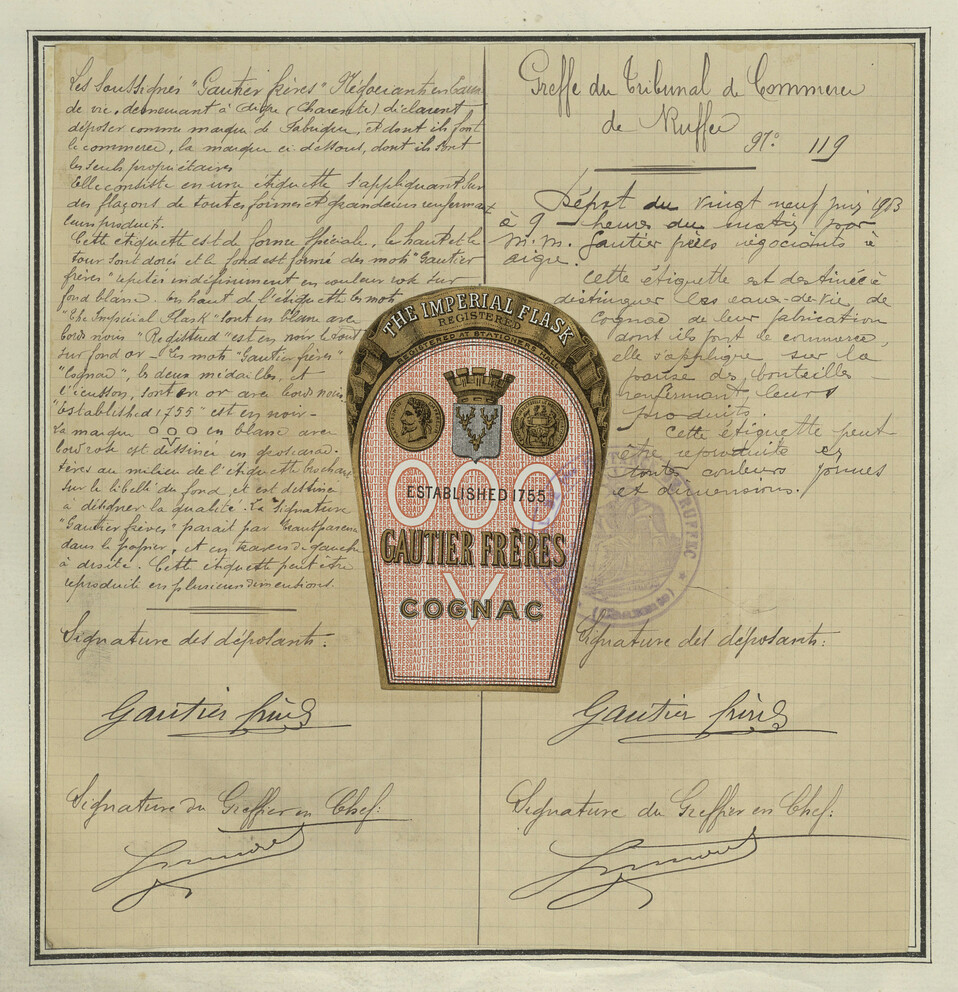 Les Soussignés "Gautier frères" Négociants en Eaux
de vie, demeurant à Aigre (Charente) déclarent
déposer comme marque de fabrique, et dont ils font
le commerce, la marque ci-dessous, dont ils sont
les seuls propriétaires
Elle consiste en une étiquette s'appliquant sur
des flaçons de toutes formes et grandeurs renfermant
leurs produits.
Cette étiquette est de forme spéciale, le haut et le
tour sont dorés et le fond est formé des mots "Gautier
frères" répétés indéfiniment en couleur rose sur
fond blanc. en haut de l'étiquette les mots
"The Impérial Flask" sont en blanc avec
bords noirs "Registered" est en noir
sur fond or - Les mots "Gautier frères"
"Cognac", les deux médailles, et
l'écusson, sont en or avec bords noirs,
"Established 1755" est en noir -
La marque OOO en blanc avec
V
bord rose est dessinée en
au milieu de l'étiquette
sur le libellé du fond, et est destinée
à désigner la qualité. La signature
"Gautier frères" parait par transparence
dans le papier, et en travers de gauche
à droite. Cette étiquette peut être
reproduite en plusieurs dimentions.
Signature des déposants:
Gautier frères
Signature du Greffier en Chef:
Greffe du Tribunal de Commerce
de Ruffec
N° 119
Dépot du vingt neuf juin 1903
à 9 heures du matin par
M.M. Gautier frères négociants à
aigre.
Cette étiquette est destinée à
distinguer les eaux-de-vie de
Cognac de leur fabrication
dont ils font le commerce,
elle s'applique sur la
panse des bouteilles
renfermant leurs
produits.
Cette étiquette peut
être reproduite en
toutes couleurs formes
et dimensions.
Signature des déposants:
Gautier frères
Signature du Greffier en Chef:
THE IMPERIAL FLASK
REGISTERED
REGISTERED AT STATIONERS HALL
OOO
ESTABLISHED 1755
GAUTIER FRÈRES
V
COGNAC